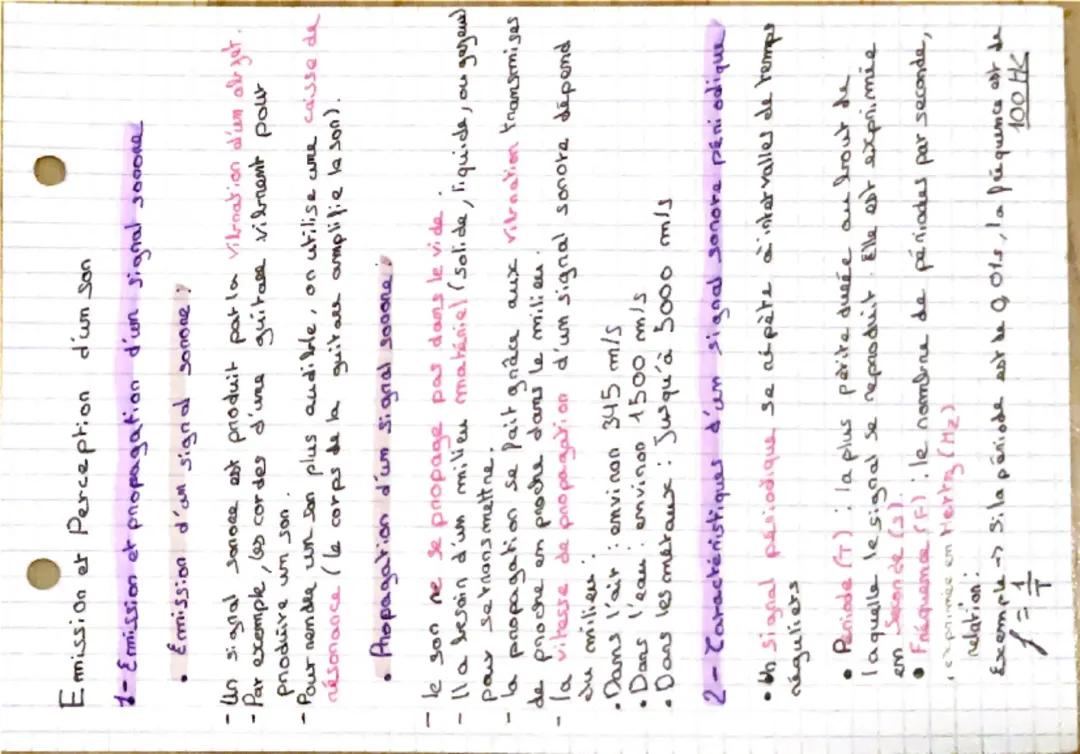 Emission et Perception d'un son
1- Émission et propagation d'un signal sonore
• Émission d'un signal sonore :
- Un signal sonore est produit par la vibration d'un objet.
- Par exemple, les cordes d'une guitare vibrent pour
produire un son.
- Pour rendre un son plus audible, on utilise une caisse de
résonance (le corps de la guitare amplifie le son).
• Propagation d'un signal sonore :
- le son ne se propage pas dans le vide.
- Il a besoin d'un milieu matériel (solide, liquide, ou gazeux)
pour se transmettre.
- la propagation se fait grâce aux vibration transmises
de proche en proche dans le milieu.
- la vitesse de propagation d'un signal sonore dépend
du milieu.
• Dans l'air : environ 345 m/s
• Dans l'eau : environ 1500 m/s
• Dans les métaux : Jusqu'à 5000 m/s
2- Caractéristiques d'un signal sonore périodique
• Un signal périodique se répète à intervalles de temps
réguliers
• Période (T) : la plus petite durée au bout de
laquelle le signal se reproduit. Elle est exprimée
en Seconde (s).
• Fréquence (F) : le nombre de périodes par seconde,
, exprimée en Hertz (Hz)
relation :
Exemple → si la période est de 0,01s, la fréquence est de
f = 1/T 100 Hz